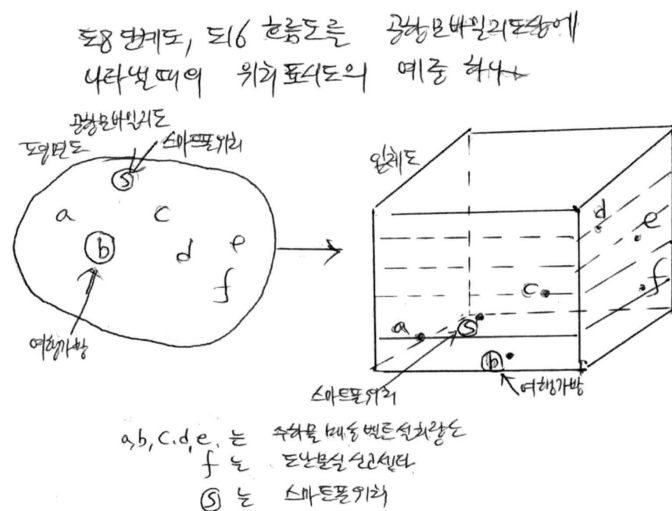 도8 단계도, 도16 흐름도를 공항모바일지도상에
나타낼때의 위치표시도의 예중 하나
공항모바일지도
평면도
스마트폰위치
S
a
c
b
d
e
f
여행가방
입체도
d
e
c
f
a
S
b
스마트폰위치
여행가방
a,b,c,d,e, 는 수하물
f 는 도난분실신고센타
S 는 스마트폰위치